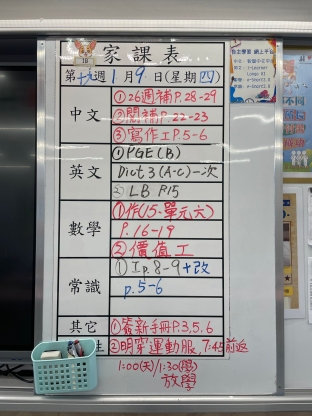 家課表
第十八週 1月9日(星期四)
中文
①26週補P.28-29
②閱補P.22-23
③寫作工P.5-6
英文
①PGE(B)
Dict 3 (A-C)一次
② LB P.15
數學
①作(15-單元六)
P.16-19
②價值工
常識
①工p.8-9+改
p.5-6
其它
P.3,5,6
生
②明穿運動服,7:45前返
1:00(天)/1:30(陽)
放學